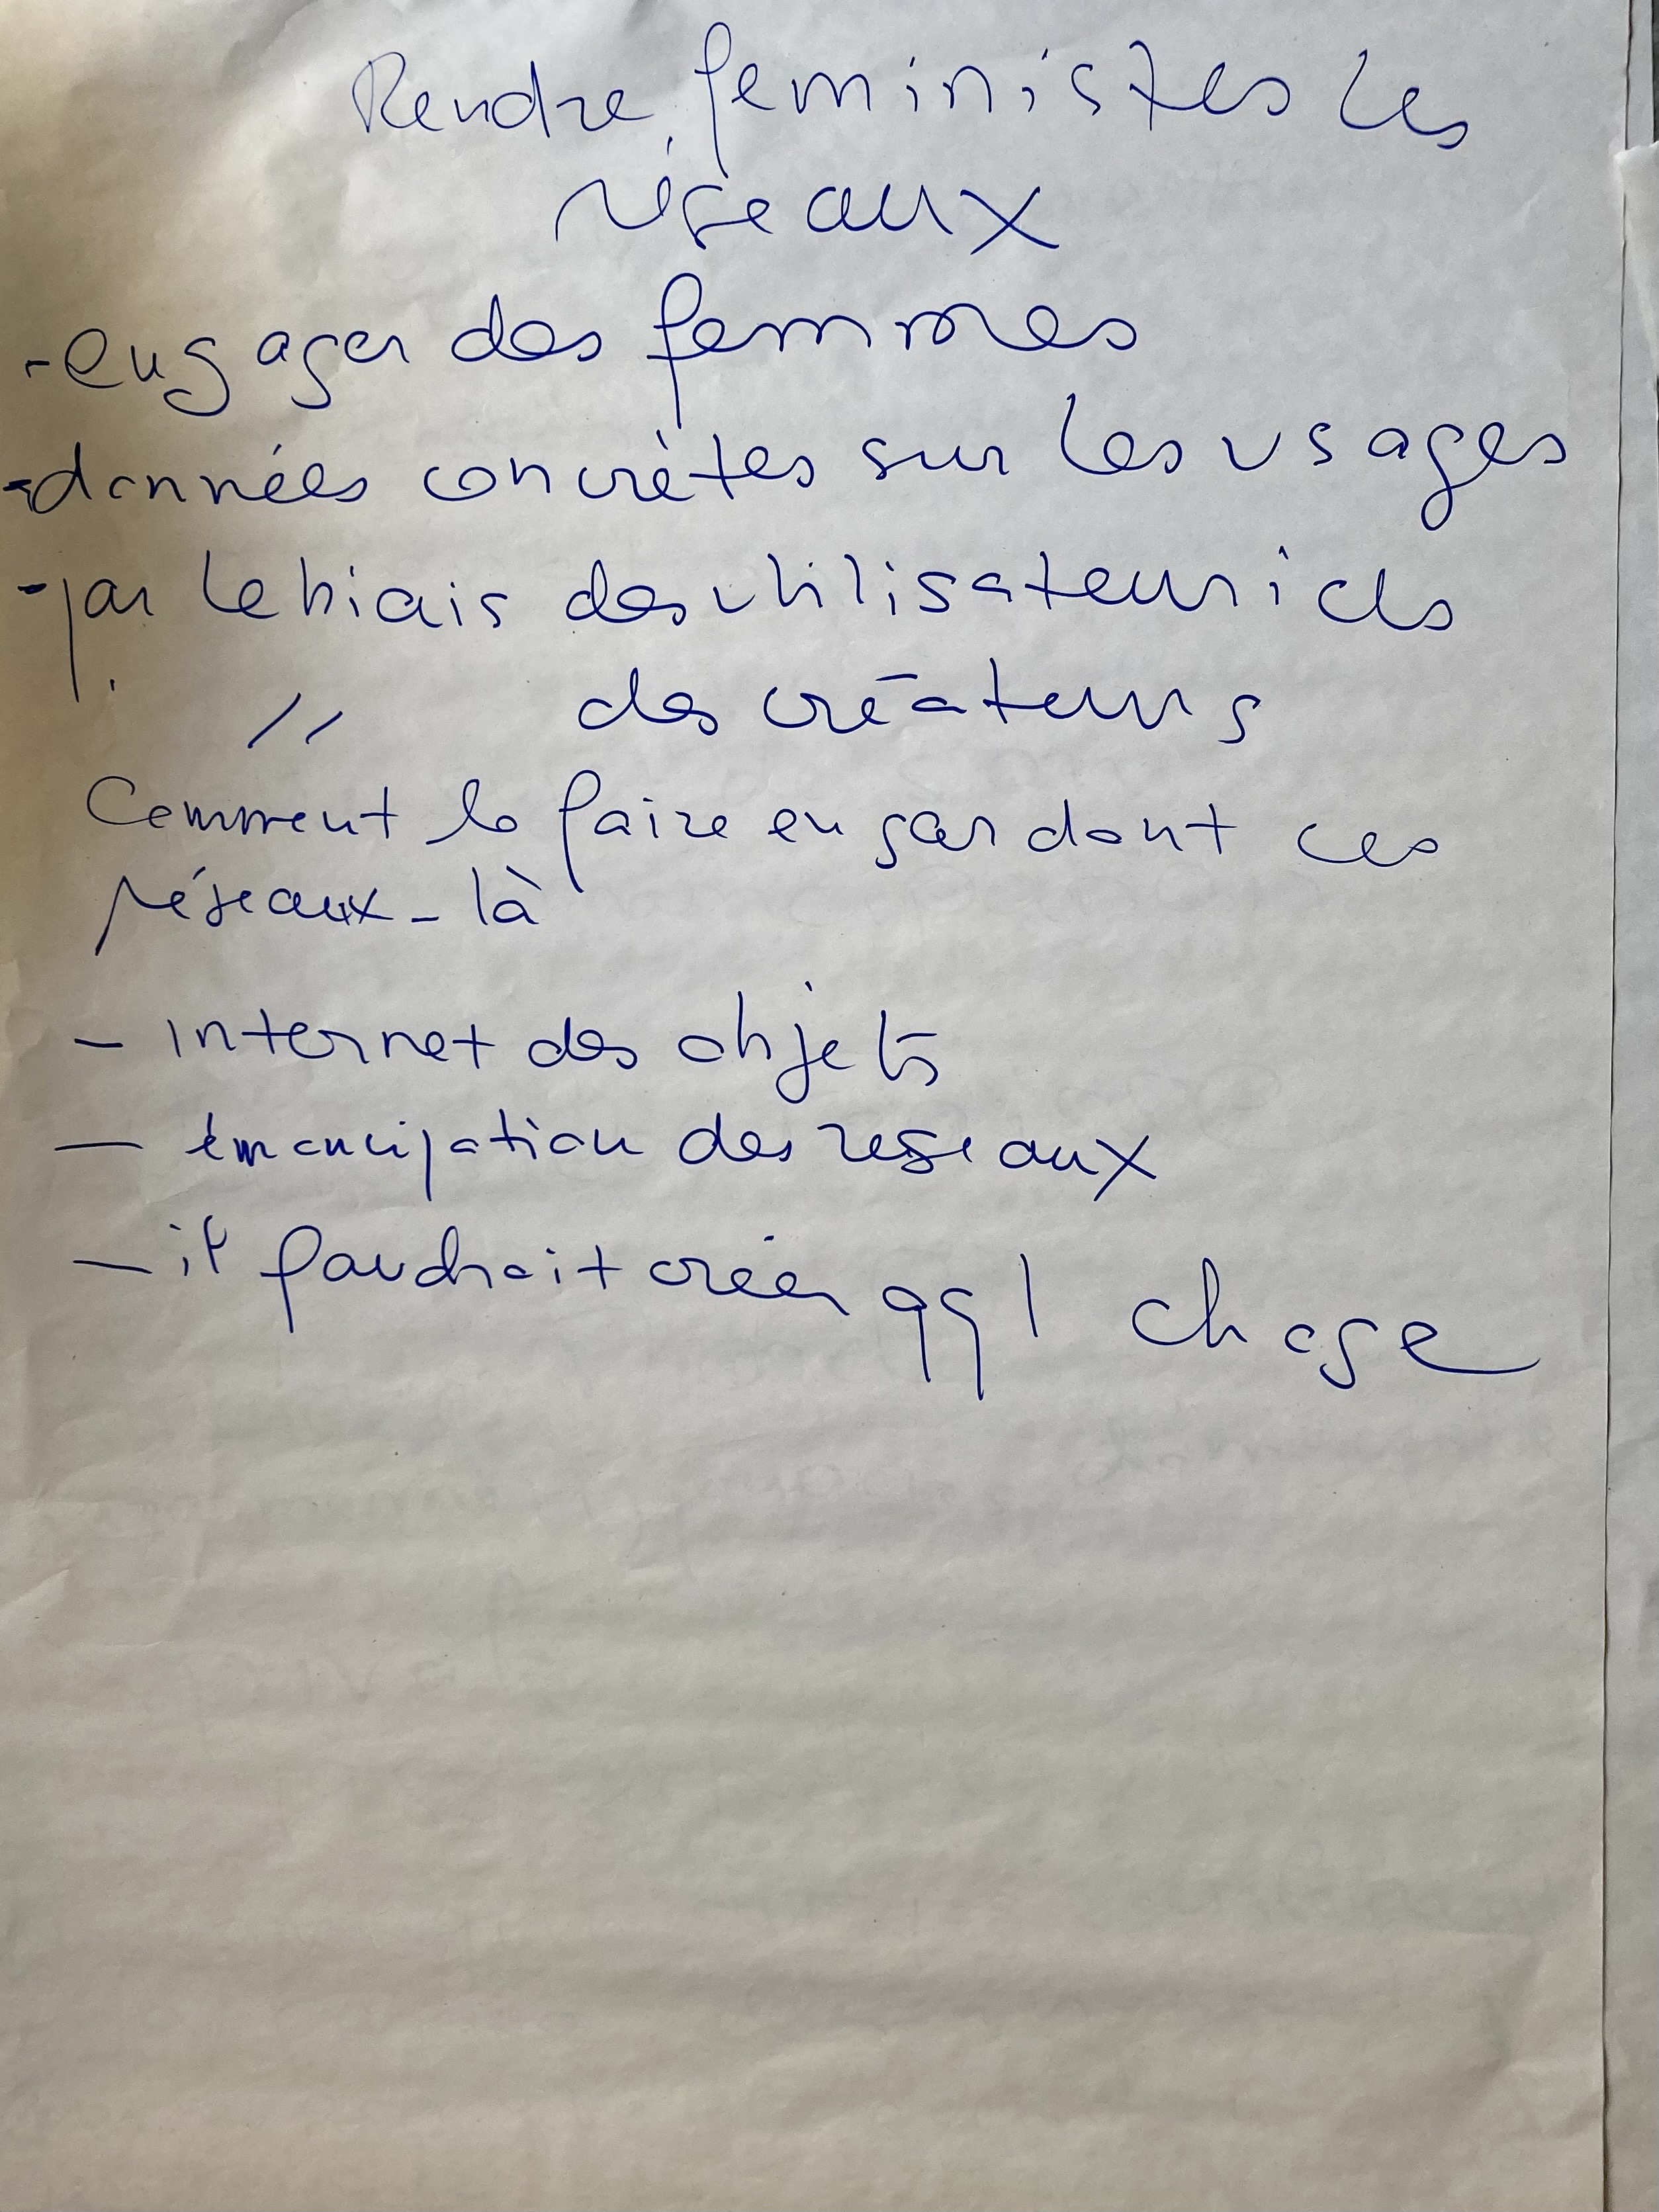 Rendre feministes les
réseaux
- engager des femmes
- données concrètes sur les usages
- par le biais des utilisateur ices
// des créateurs
Comment le faire en gardont ces
réseaux - là
- internet des objets
- émancipation des reseaux
- il faudrait créer qq1 chose